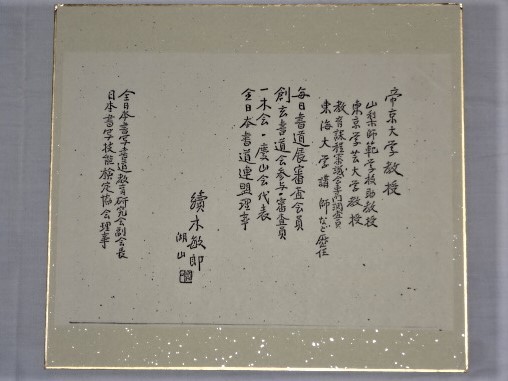 帝京大学教授
山梨師範学校助教授
東京学芸大学教授
教育課程審議会専門調査員
東海大学講師など歴任
毎日書道展審査会員
創玄書道会参与・審査員
一木会・慶山会代表
全日本書道連盟理事
續木敏郎
湖山
全日本書写書道教育研究会副会長
日本書写技能検定協会理事